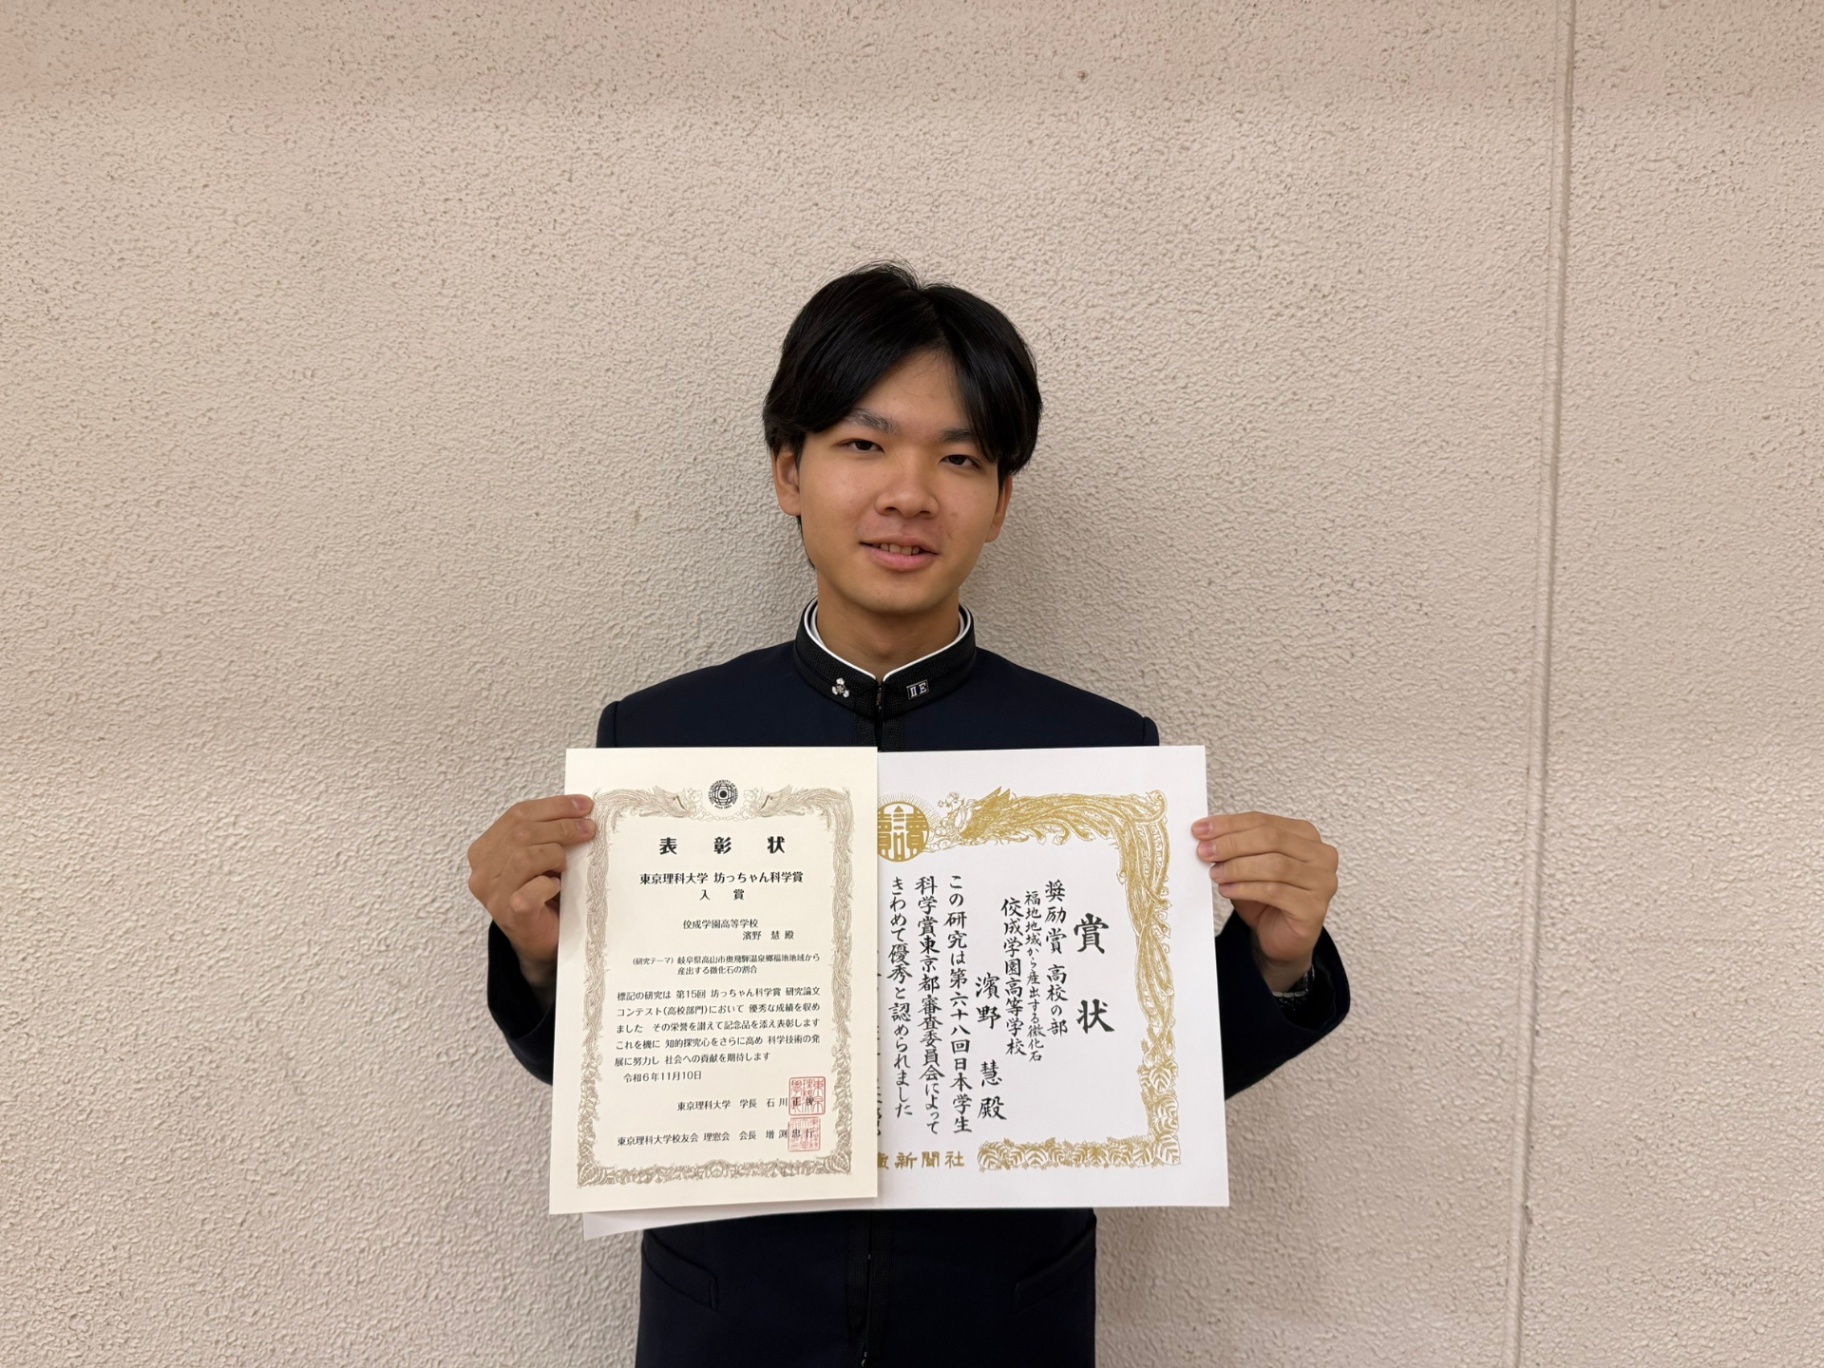 IIE
表彰状
東京理科大学 坊っちゃん科学賞
入賞
佼成学園高等学校
濱野 慧 殿
(研究テーマ) 岐阜県高山市奥飛騨温泉郷福地地域から
産出する微化石の割合
標記の研究は 第15回 坊っちゃん科学賞 研究論文
コンテスト(高校部門)において 優秀な成績を収め
ました その栄誉を讃えて記念品を添え表彰します
これを機に 知的探究心をさらに高め 科学技術の発
展に努力し 社会への貢献を期待します
令和6年11月10日
東京理科大学 学長 石川正俊
東京理科大学校友会 理窓会 会長 増渕忠行
讀
賞状
奨励賞 高校の部
福地地域から産出する微化石
佼成学園高等学校
濱野 慧 殿
この研究は第六十八回日本学生
科学賞東京都審査委員会によって
きわめて優秀と認められました
新聞社